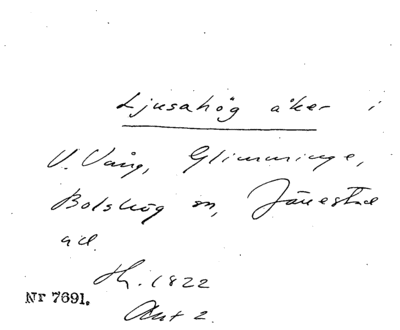 Ljusahög åker i
V. Vång, Glimminge,
Bolshög sn, Järrestad
hd.
Sk. 1822
Akt 2.
Nr 7691.